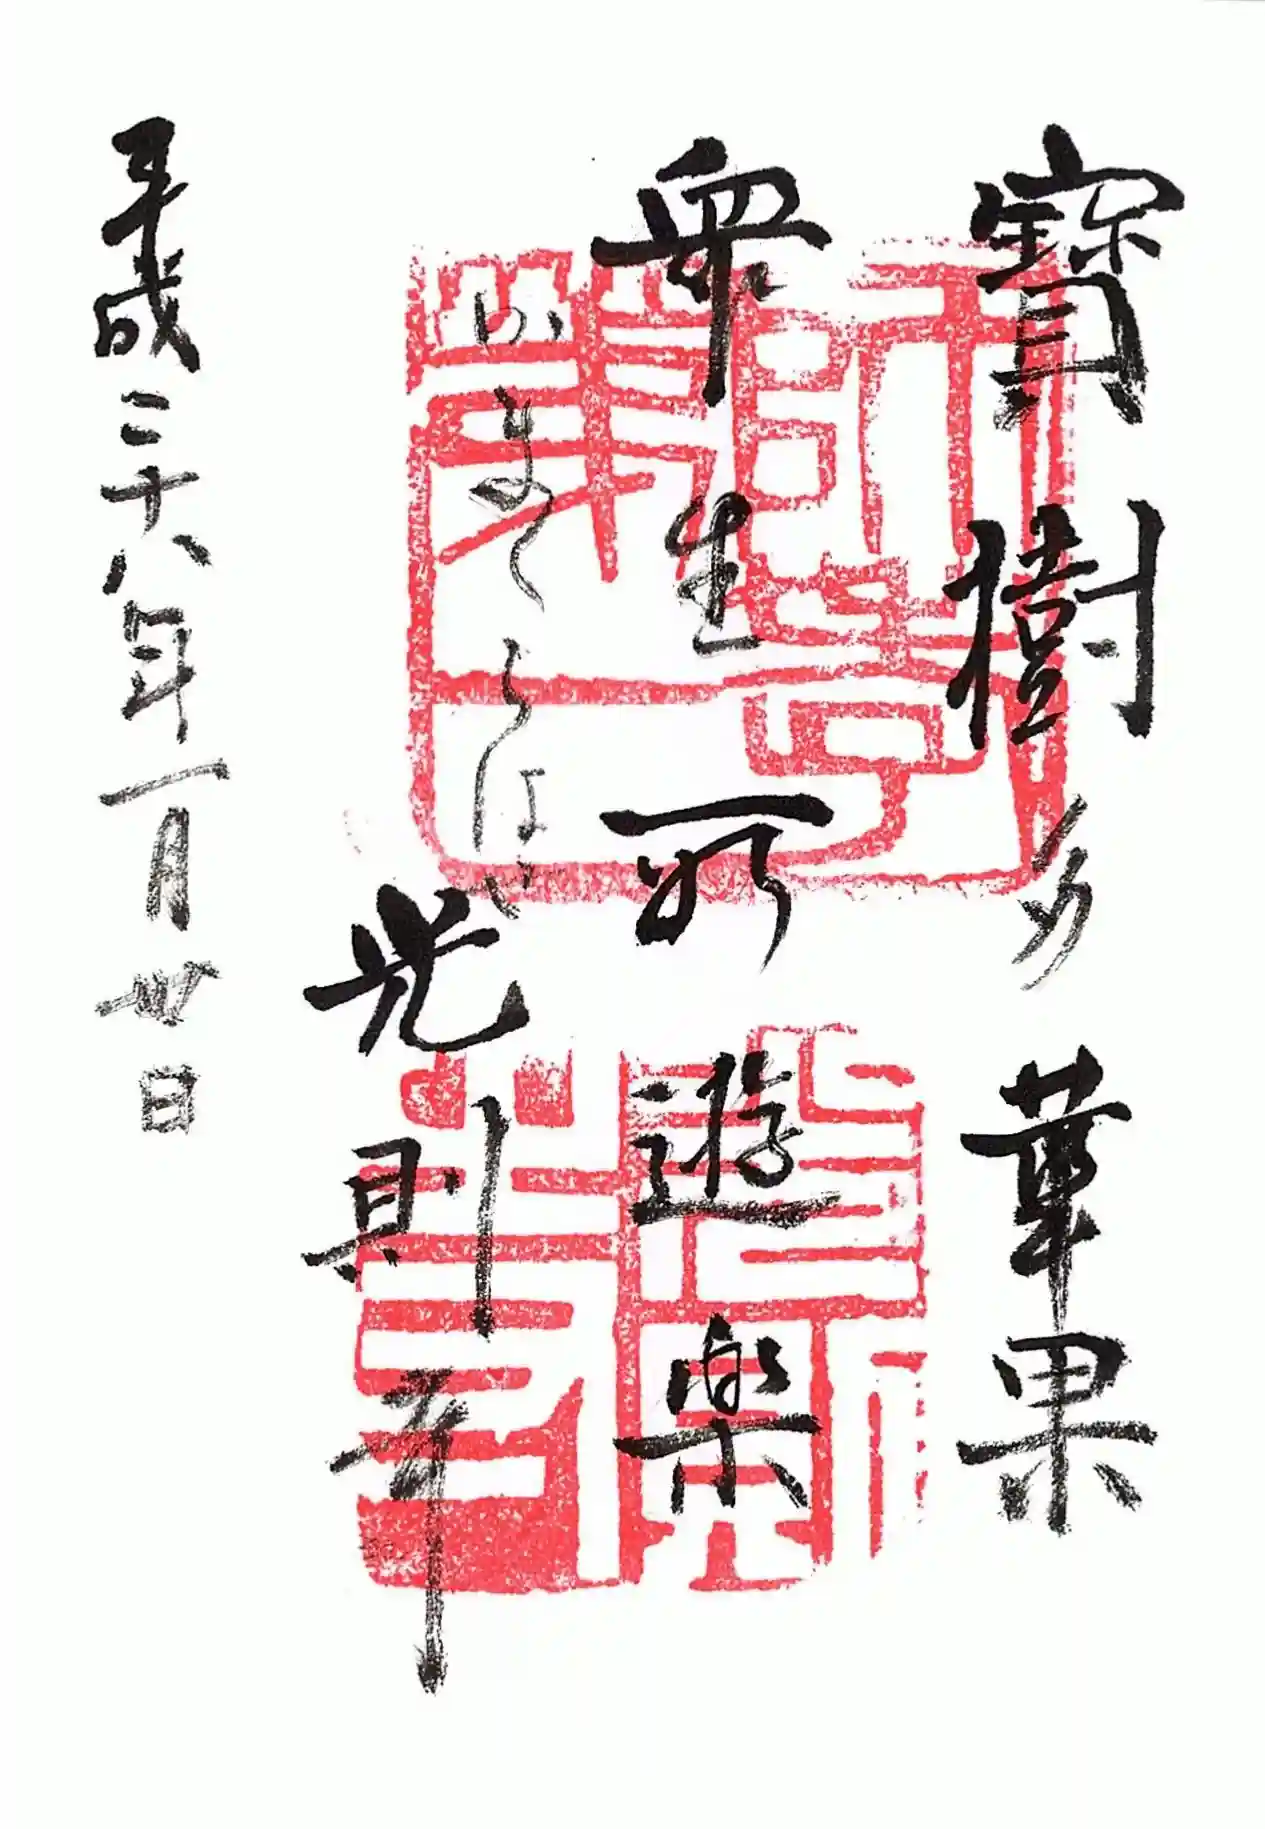 寶樹多華果
衆生所遊樂
光則寺
平成二十八年一月廿日